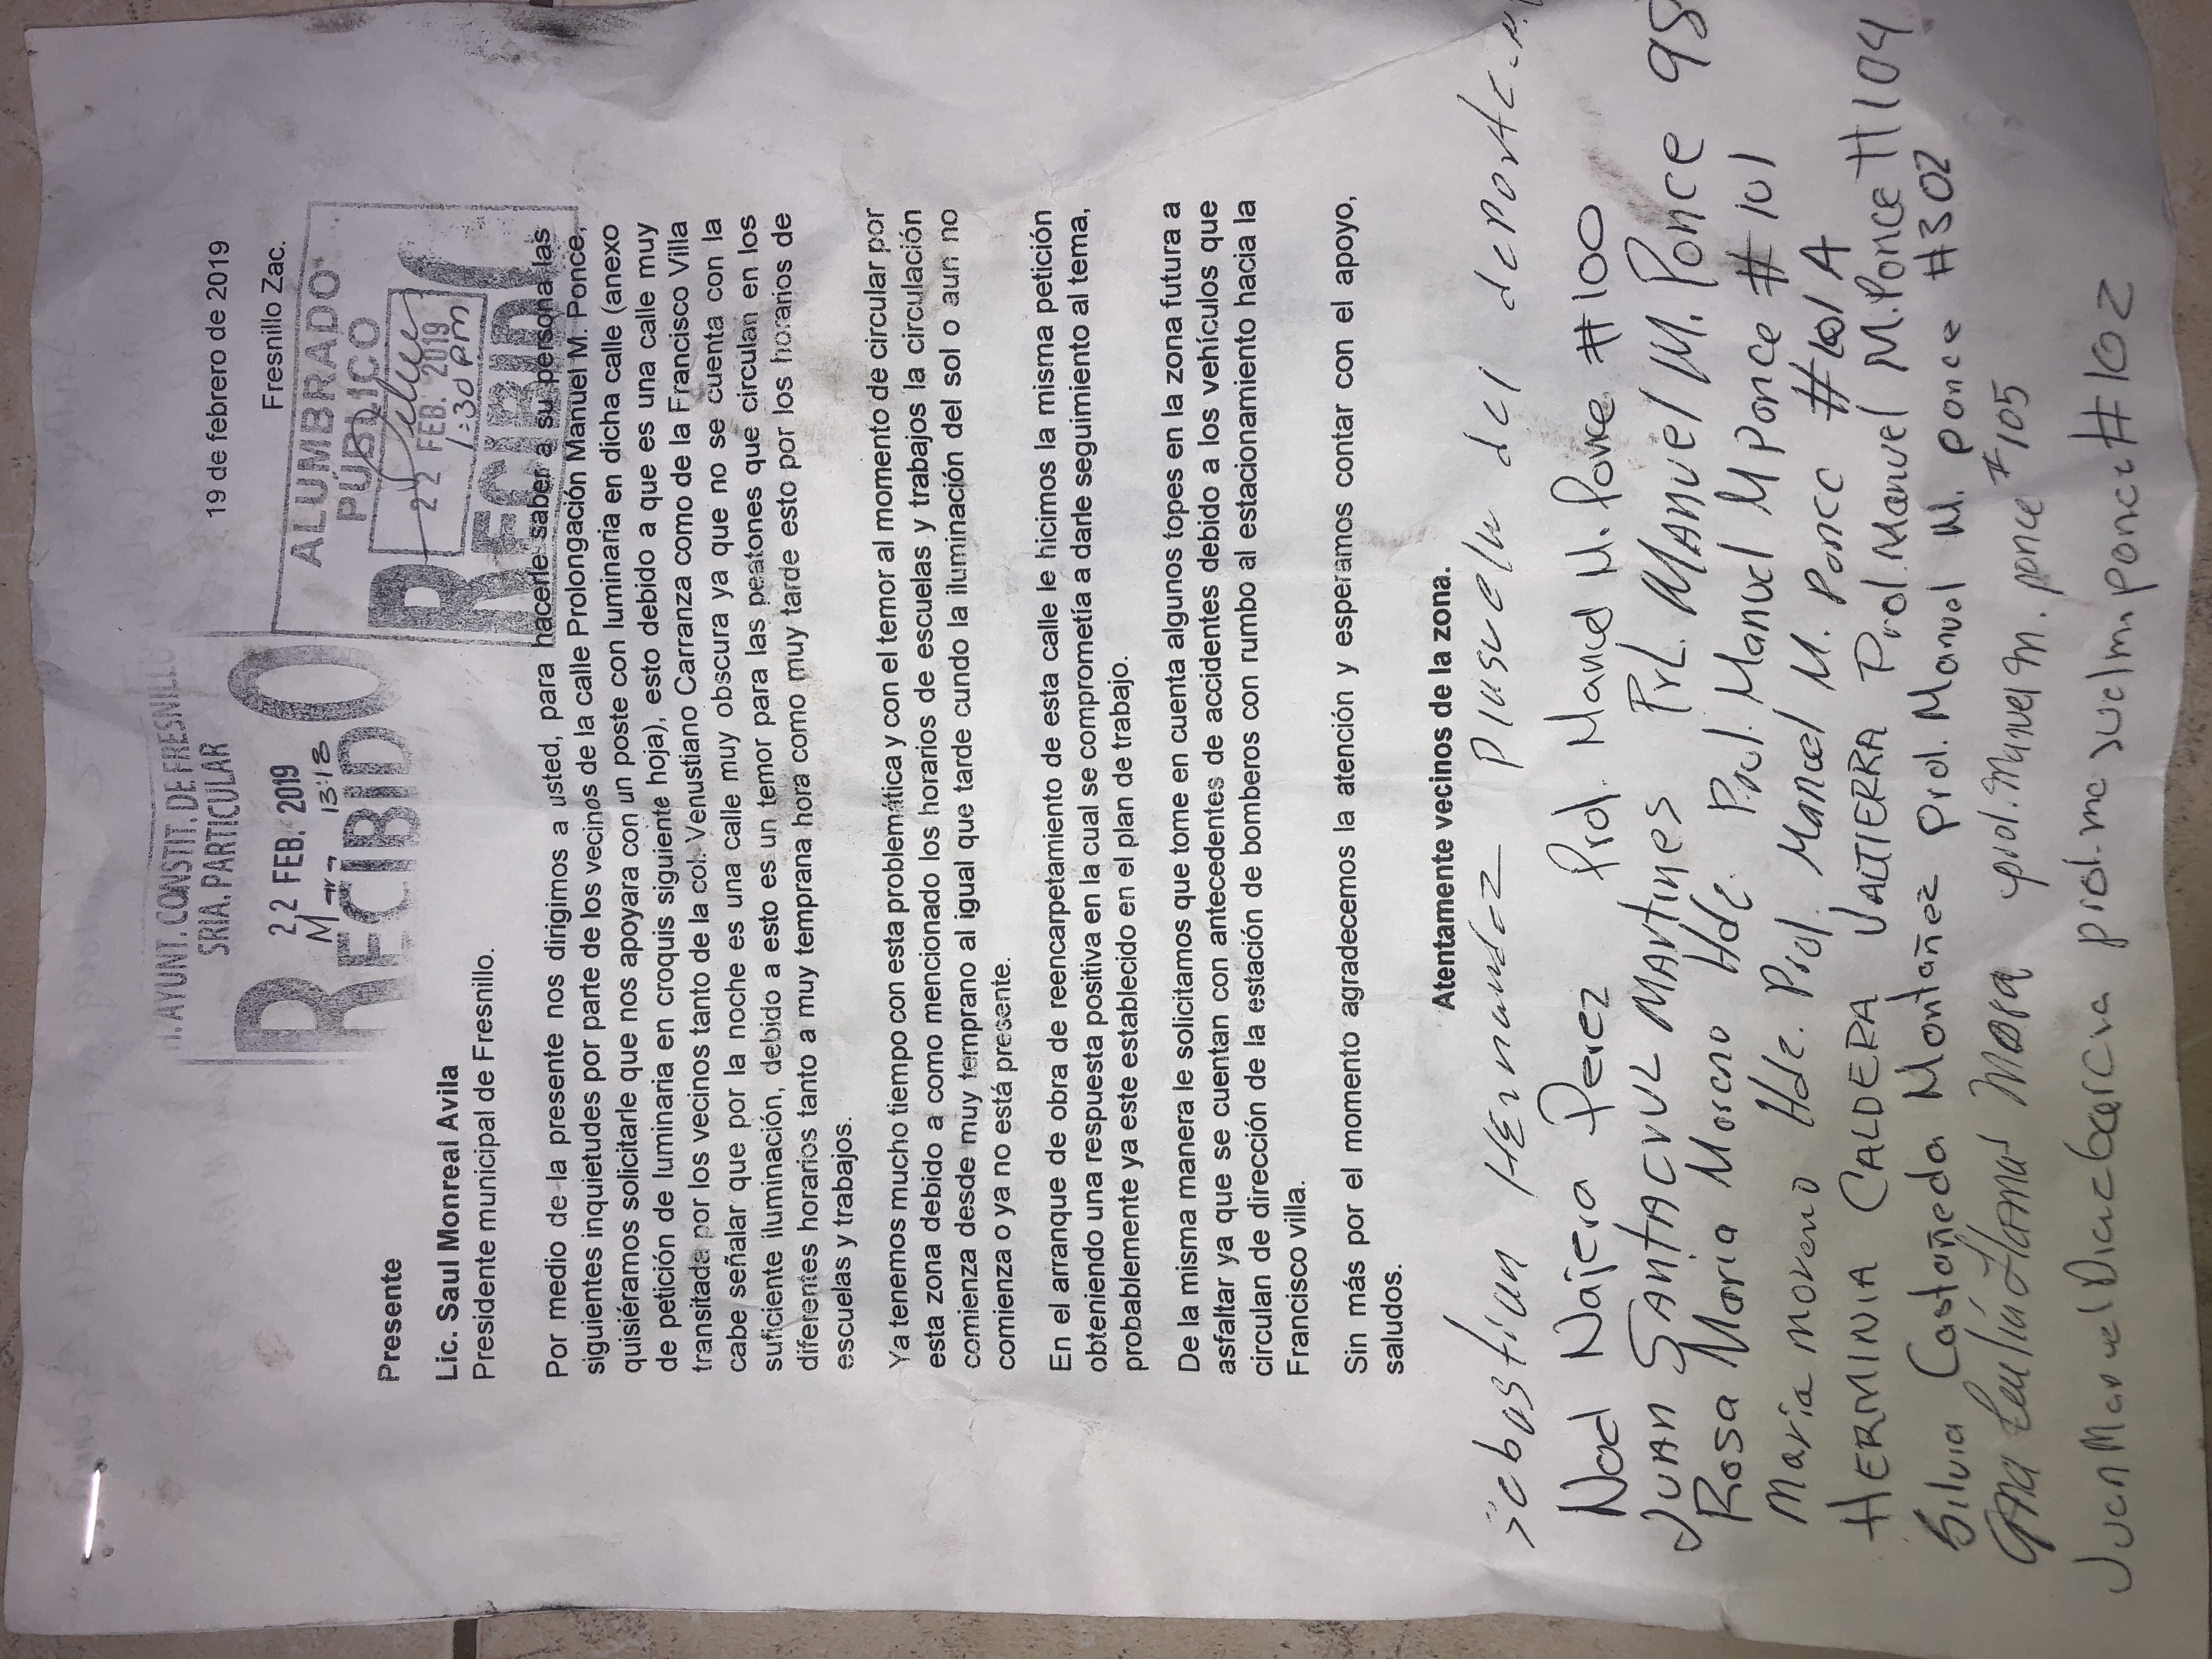 19 de febrero de 2019
Fresnillo Zac.
H. AYUNT. CONSTIT. DE FRESNILLO
SRIA. PARTICULAR
22 FEB. 2019
13:18
RECIBIDO
ALUMBRADO
PÚBLICO
22 FEB. 2019
1:30 pm
RECIBIDO
Presente
Lic. Saul Monreal Avila
Presidente municipal de Fresnillo.
Por medio de la presente nos dirigimos a usted, para hacerle saber a su persona las
siguientes inquietudes por parte de los vecinos de la calle Prolongación Manuel M. Ponce,
quisiéramos solicitarle que nos apoyara con un poste con luminaria en dicha calle (anexo
de petición de luminaria en croquis siguiente hoja), esto debido a que es una calle muy
transitada por los vecinos tanto de la col. Venustiano Carranza como de la Francisco Villa
cabe señalar que por la noche es una calle muy obscura ya que no se cuenta con la
suficiente iluminación, debido a esto es un temor para las peatones que circulan en los
diferentes horarios tanto a muy temprana hora como muy tarde esto por los horarios de
escuelas y trabajos.
Ya tenemos mucho tiempo con esta problemática y con el temor al momento de circular por
esta zona debido a como mencionado los horarios de escuelas y trabajos la circulación
comienza desde muy temprano al igual que tarde cundo la iluminación del sol o aun no
comienza o ya no está presente.
En el arranque de obra de reencarpetamiento de esta calle le hicimos la misma petición
obteniendo una respuesta positiva en la cual se comprometía a darle seguimiento al tema,
probablemente ya este establecido en el plan de trabajo.
De la misma manera le solicitamos que tome en cuenta algunos topes en la zona futura a
asfaltar ya que se cuentan con antecedentes de accidentes debido a los vehículos que
circulan de dirección de la estación de bomberos con rumbo al estacionamiento hacia la
Francisco villa.
Sin más por el momento agradecemos la atención y esperamos contar con el apoyo,
saludos.
Atentamente vecinos de la zona.
sebastian Hernandez plusuelu del deporte
Noel Najera Perez Prol. Manuel M. Ponce #100
JUAN SANTACRUZ MARTINES PrL. MANUEl M. PONCE 98
Rosa Maria Moreno Hde. Prol. Manuel M Ponce #101
Maria moreno Hde. Prol. Manuel M. Ponce #101 A
HERMINIA CALDERA VALTIERRA Prol. Manuel M. Ponce #104
Silvia Castañeda Montañez Prol. Manuel M. Ponce #302
Ana Mora prol. Manuel m. ponce #105
Juan Manuel Diaz Garcia prol. m. ponce #102